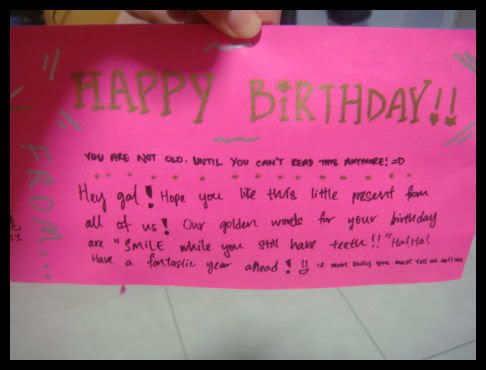 HAPPY BiRTHDAY!!
YOU ARE NOT OLD. UNTIL YOU CAN'T READ THIS ANYMORE! =D
Hey gal! Hope you like this little present from
all of us! Our golden words for your birthday
are "SMILE while you still have teeth!!" Ha!Ha!
Have a fantastic year ahead! !!
FROM...